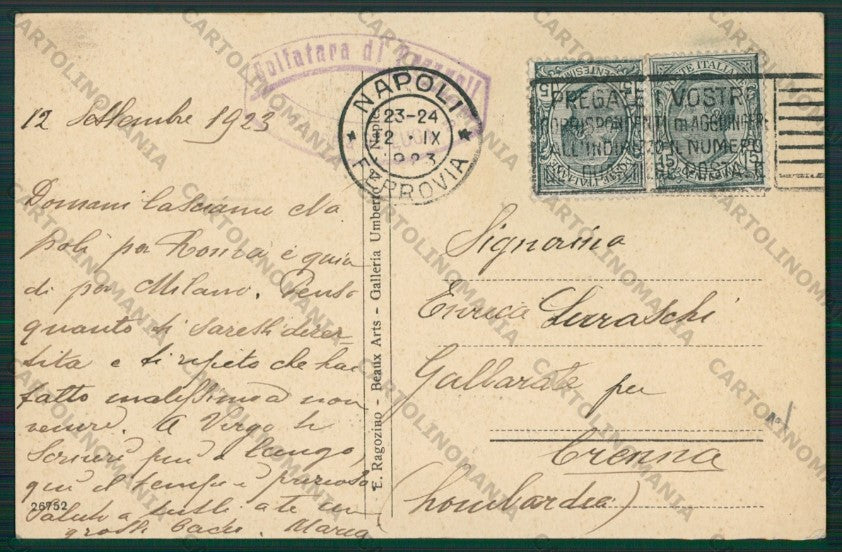 Solfatara di Pozzuoli
NAPOLI
23-24
12 · IX
1923
FERROVIA
PREGATE I VOSTRI
CORRISPONDENTI DI AGGIUNGERE
ALL'INDIRIZZO IL NUMERO
POSTALE
POSTE ITALIANE
15
12 Settembre 1923
Domani lasciamo Na
poli per Roma e quin
di per Milano. Penso
quanto ti saresti diver-
tita e ti ripeto che hai
fatto malissimo a non
venire. A Virgo ti
scriverò più a lungo,
qui il tempo è prezioso
Saluti a tutti a te un
grosso bacio. Maria
Signorina
Enrica
Gallarate per
Crenna
(Lombardia)
E. Ragozino - Beaux Arts - Galleria Umberto
26752
CARTOLINOMANIA